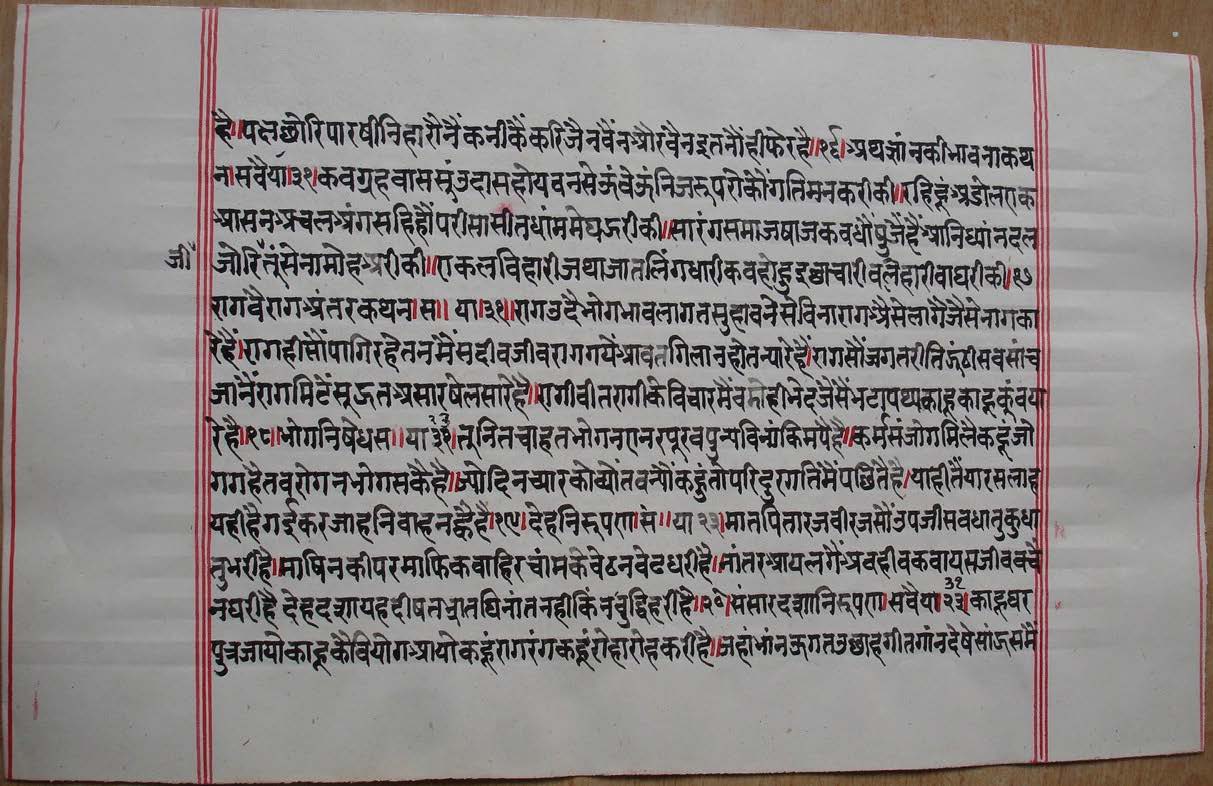 है॥पक्षछोरिपारषीनिहारौनैंकनीकैंकरिजैनवैंनऔरवैनइतनौंहीफेरहै॥१६॥अथज्ञांनकीभावनाकथ
न॥सवैया॥३१॥कवगृहवाससूंउदासहोयवनसेऊंवेऊंनिजरुपरोकौंगतिमनकरीकी॥रहिहूंअडोलएक
आसनअचलअंगसहिहौंपरीसासीतघांममेघझरीकी॥सारंगसमाजषाजकवधौंषुजैंहैंआनिध्यांनदल
जोरिजीतूंसेनामोहअरीकी॥एकलविहारीजथाजातलिंगधारीकवहोहुइछाचारीवलैहारीवाघरीकी॥१७
रागवैरागअंतरकथन॥स॥या॥३१॥रागउदैभोगभावलागतसुहावनेसेविनारागअैसेलागैजैसेनागका
रेहैं॥रागहीसौंपागिरहेतनमैंसदीवजीवरागगयेंआवतगिलानहोतन्यारेहैं॥रागसौंजगतरीतिझूंठीसवसांच
जांनैंरागमिटैंसूझतअसारषेलसारेहैं॥रागीवीतरागीकेविचारमैंवडोहीभेदजैसैंभटापथ्यकाहूकाहूकूंवया
रेहै॥१८॥भोगनिषेधस॥या॥३१॥तूनितचाहतभोगनएनरपूरवपुन्यविन्यंकिमपैहै॥कर्मसंजोगमिलैकहूंजो
गगहैतवरोगनभोगसकैहै॥ज्योदिनच्यारकोव्योंतवन्यौंकहूंतोपरिदुरगतिमैंपछितैहै॥याहीतैंयारसलाह
यहीहैगईकरजाहनिवाहनह्वैहै॥१९॥देहनिरुपण॥सं॥या॥२३॥मातपितारजवीरजसौंउपजीसवधातुकुधा
तुभरीहै॥माषिनकीपरमाफिकवाहिरचांमकेवेठनवेढधरीहै॥नांतरआयलगैंअवहीवकवायसजीववचै
नघरीहैदेहदशायहदीषतभ्रातघिनांतनहीकिंनवुद्धिहरीहै॥२०॥संसारदशानिरुपण॥सवैया॥३१॥काहूघर
पुत्रजायोकाहूकैवियोगआयोकहूंरागरंगकहूंरोहारोहकरीहै॥जहांभांनऊगतउछाहगीतगांनदेषेसांझसमैं